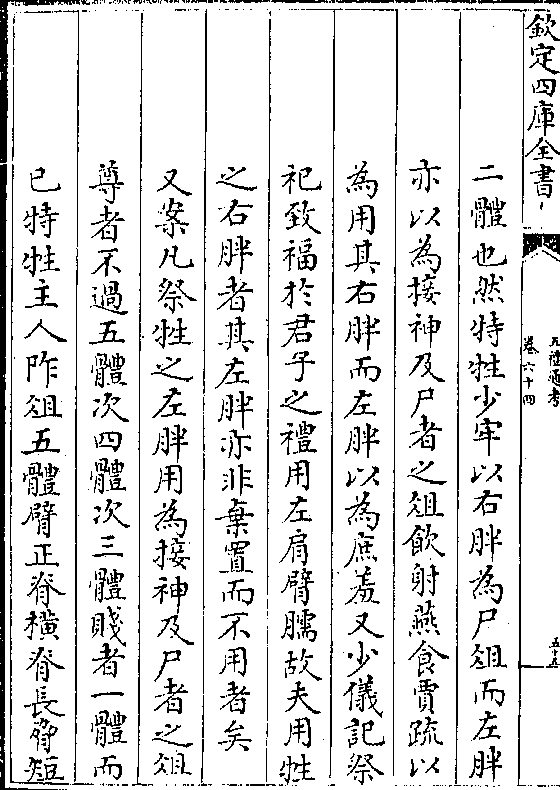 欽定四庫全書
五禮通考
卷六十四
五十五
二體也然特牲少牢以右胖為尸俎而左胖
亦以為接神及尸者之俎飲射燕食賈疏以
為用其右胖而左胖以為庶羞又少儀記祭
祀致福於君子之禮用左肩臂臑故夫用牲
之右胖者其左胖亦非棄置而不用者矣
又案凡祭牲之左胖用為接神及尸者之俎
尊者不過五體次四體次三體賤者一體而
已特牲主人阼俎五體臂正脊橫脊長脅短